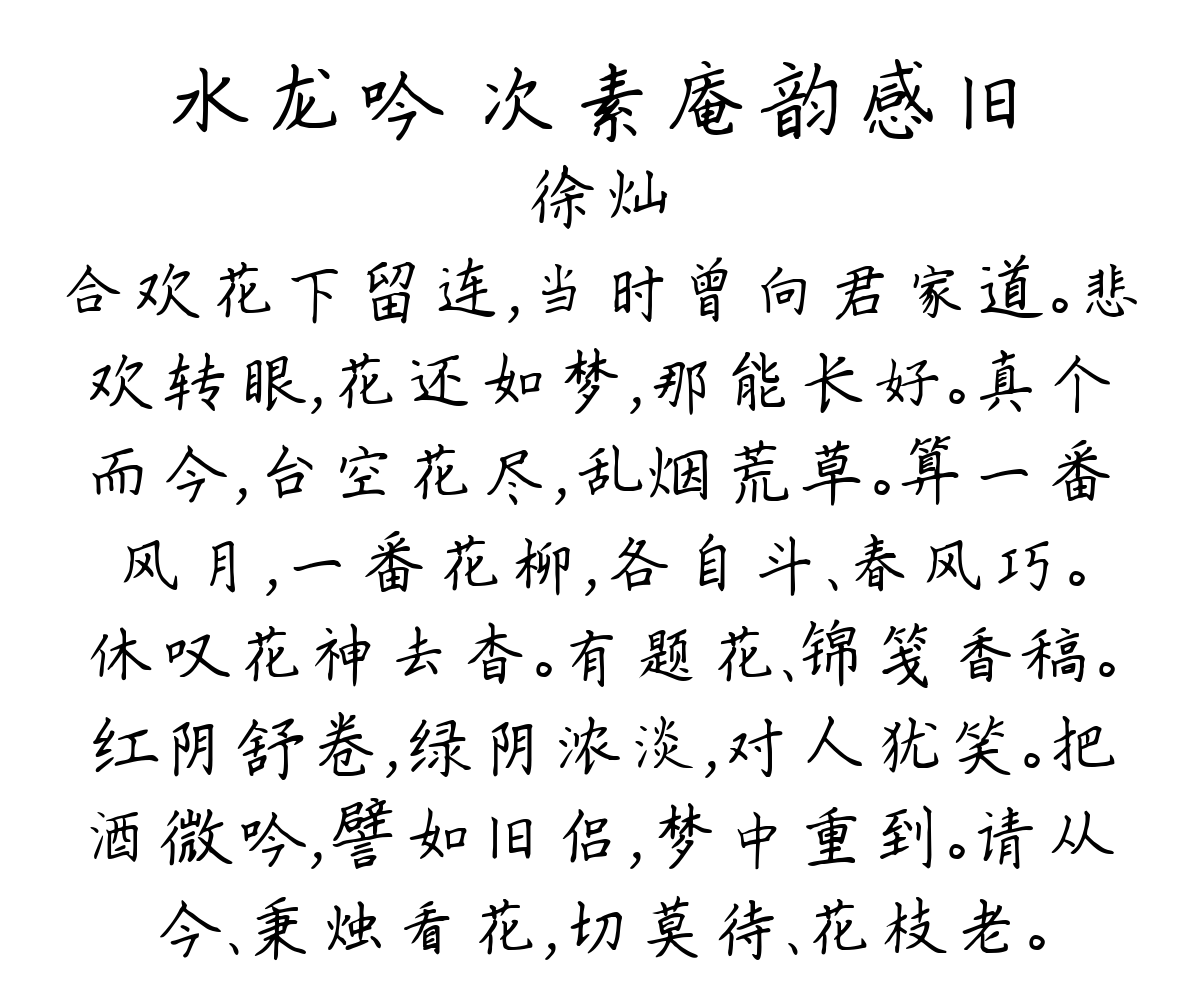 水龙吟 次素庵韵感旧
徐灿
合欢花下留连,当时曾向君家道。悲
欢转眼,花还如梦,那能长好。真个
而今,台空花尽,乱烟荒草。算一番
风月,一番花柳,各自斗、春风巧。
休叹花神去杳。有题花、锦笺香稿。
红阴舒卷,绿阴浓淡,对人犹笑。把
酒微吟,譬如旧侣,梦中重到。请从
今、秉烛看花,切莫待、花枝老。